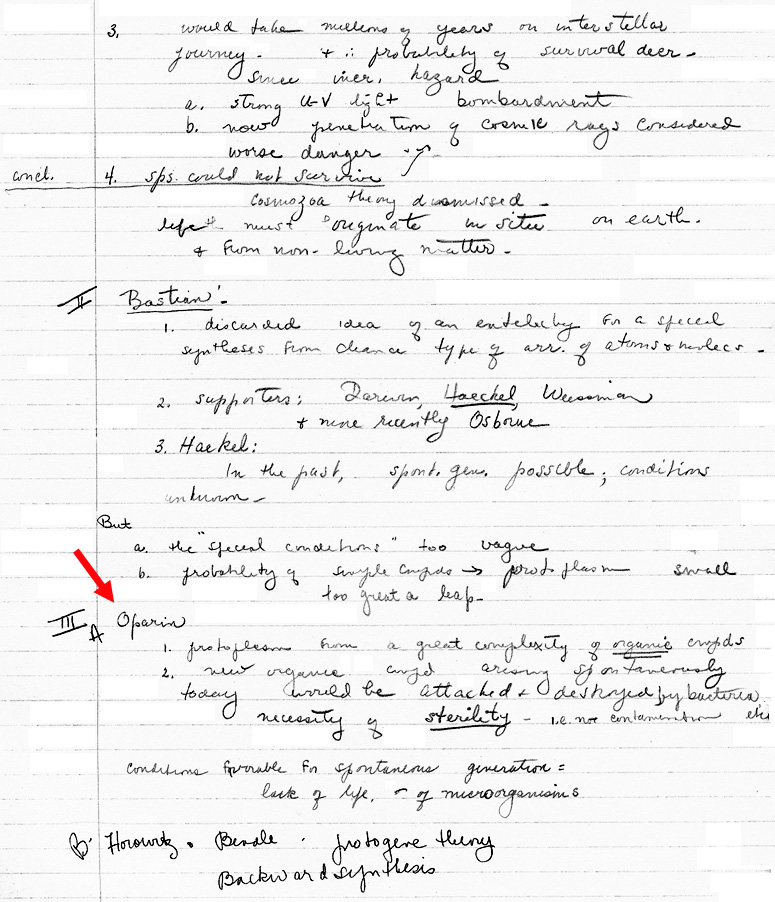 3. would take millions of years on interstellar
journey. + ∴ probability of survival decr.
since incr. hazard
a. strong U-V light bombardment
b. now penetration of cosmic rays considered
worse danger
concl. 4. sps. could not survive
Cosmozoa theory dismissed.
life must originate in situ on earth.
& from non-living matter.
II Bastian:
1. discarded idea of an entelechy for a special
syntheses from chance type of arr. of atoms & molecs.
2. supporters: Darwin, Haeckel, Weissman
+ more recently Osborne
3. Haekel:
In the past, spont. gen. possible; conditions
unknown.
But
a. the "special conditions" too vague
b. probability of simple cmpds → protoplasm small
too great a leap.
III A Oparin
1. protoplasm from a great complexity of organic cmpds
2. new organic cmpd arising spontaneously
today would be attacked & destroyed by bacteria
necessity of sterility - i.e. no contamination etc
Conditions favorable for spontaneous generation =
lack of life, of microorganisms
B. Horowitz. Beadle. protogene theory
Backward synthesis